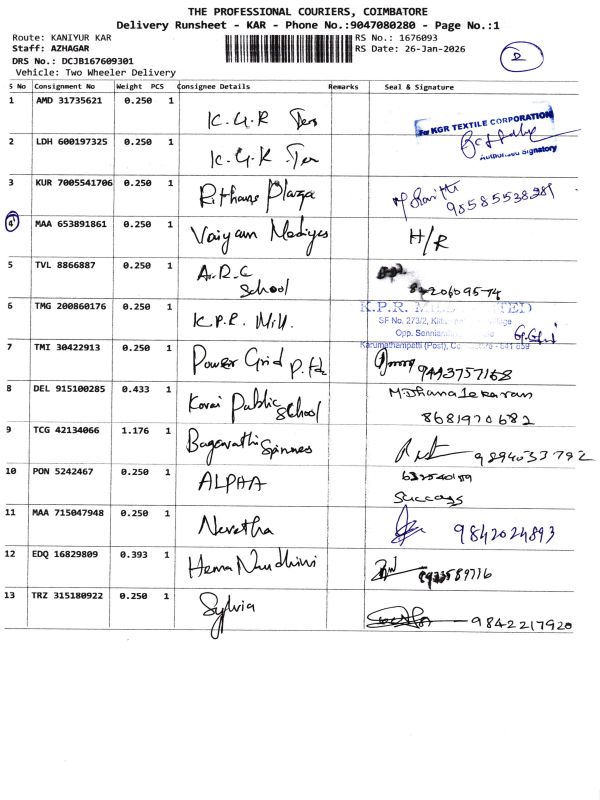 THE PROFESSIONAL COURIERS, COIMBATORE
Delivery Runsheet - KAR - Phone No.:9047080280 - Page No.:1
Route: KANIYUR KAR RS No.: 1676093
Staff: AZHAGAR RS Date: 26-Jan-2026
DRS No.: DCJB167609301
Vehicle: Two Wheeler Delivery
2
S No Consignment No Weight PCS Consignee Details Remarks Seal & Signature
1 AMD 31735621 0.250 1 K.G.R Tex
For KGR TEXTILE CORPORATION
Authorised Signatory
2 LDH 600197325 0.250 1 K.G.R Tex
3 KUR 7005541706 0.250 1 Rithans Plaza 95855538281
4 MAA 653891861 0.250 1 Vaiyam Mediyes H/R
5 TVL 8866887 0.250 1 A.R.C
School
6 TMG 200860176 0.250 1 K.P.R. Mill.
K.P.R. MILL LIMITED
SF No. 273/2, Village
Opp.
Karumathampatti (Post), - 641 659
7 TMI 30422913 0.250 1 Power Grid P.td 9443757168
8 DEL 915100285 0.433 1 Korai Public School M.Dhanasekaran
8681970682
9 TCG 42134066 1.176 1 Bagavathi Spinnes 9894053792
10 PON 5242467 0.250 1 ALPHA
Success
11 MAA 715047948 0.250 1 Nevetha 9842024893
12 EDQ 16829809 0.393 1 Hema Nandhini
13 TRZ 315180922 0.250 1 Sylvia 9842217920